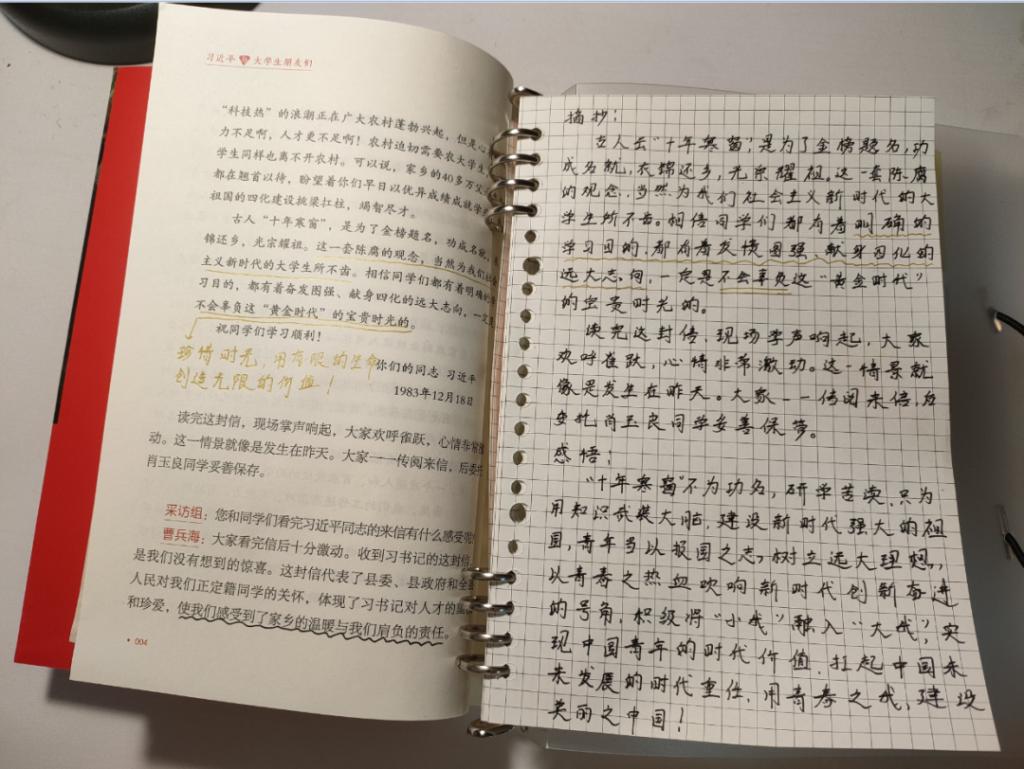 习近平 大学生朋友们
“科技热”的浪潮正在广大农村蓬勃兴起，但是心
力不足啊，人才更不足啊！农村迫切需要农大学生，
学生同样也离不开农村。可以说，家乡的40多万父
都在翘首以待，盼望着你们早日以优异成绩成就学
祖国的四化建设挑梁扛柱，竭智尽才。
古人“十年寒窗”，是为了金榜题名，功成名就，
锦还乡，光宗耀祖。这一套陈腐的观念，当然为我们
主义新时代的大学生所不齿。相信同学们都有着明确的
习目的、都有着奋发图强、献身四化的远大志向，一定
不会辜负这“黄金时代”的宝贵时光的。
祝同学们学习顺利！
珍惜时光，用有限的生命
你们的同志 习近平
创造无限的价值！
1983年12月18日
读完这封信，现场掌声响起，大家欢呼雀跃，心情非常
动。这一情景就像是发生在昨天。大家一一传阅来信，后委
肖玉良同学妥善保存。
采访组：您和同学们看完习近平同志的来信有什么感受
曹兵海：大家看完信后十分激动。收到习书记的这封信
是我们没有想到的惊喜。这封信代表了县委、县政府和全
人民对我们正定籍同学的关怀，体现了习书记对人才的
和珍爱，使我们感受到了家乡的温暖与我们肩负的责任。
004
摘抄：
古人云“十年寒窗”，是为了金榜题名，功
成名就，衣锦还乡，光宗耀祖。这一套陈腐
的观念，当然为我们社会主义新时代的大
学生所不齿。相信同学们都有着明确的
学习目的，都有着发愤图强、献身四化的
远大志向，一定是不会辜负这“黄金时代”
的宝贵时光的。
读完这封信，现场掌声响起，大家
欢呼雀跃，心情非常激动。这一情景就
像是发生在昨天。大家一一传阅来信，后
委托肖玉良同学妥善保存。
感悟：
“十年寒窗”不为功名，研学苦读，只为
用知识武装大脑，建设新时代强大的祖
国，青年当以报国之志，树立远大理想，
以青春之热血吹响新时代创新奋进
的号角，积极将“小我”融入“大我”，实
现中国青年的时代价值，扛起中国未
来发展的时代重任，用青春之我，建设
美丽之中国！